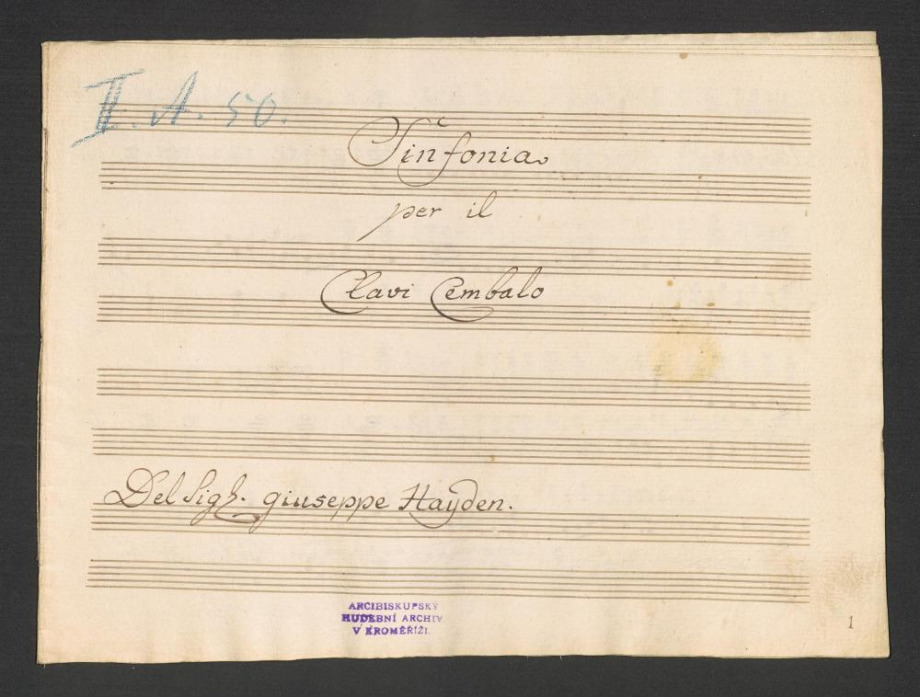 II. A. 50.
Sinfonia
per il
Clavi Cembalo
Del Sigl. giuseppe Hayden.
ARCIBISKUPSKÝ
HUDEBNÍ ARCHIV
V KROMĚŘÍŽI.
1